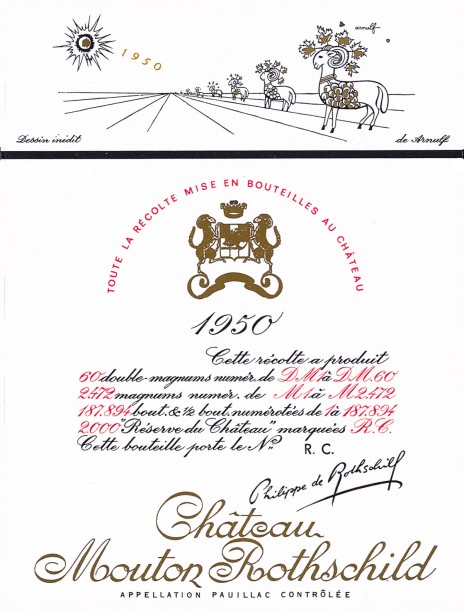 arnulf
1950
Dessin inédit
de Arnulf
TOUTE LA RÉCOLTE MISE EN BOUTEILLES AU CHÂTEAU
1950
Cette récolte a produit
60 double-magnums numér. de D M 1 à D M. 60
2.472 magnums numér. de M 1 à M 2.472
187.894 bout. & ½ bout. numérotées de 1 à 187.894
2.000 "Réserve du Château" marquées R.C.
Cette bouteille porte le Nº R. C.
Philippe de Rothschild
Château
Mouton Rothschild
APPELLATION PAUILLAC CONTRÔLÉE